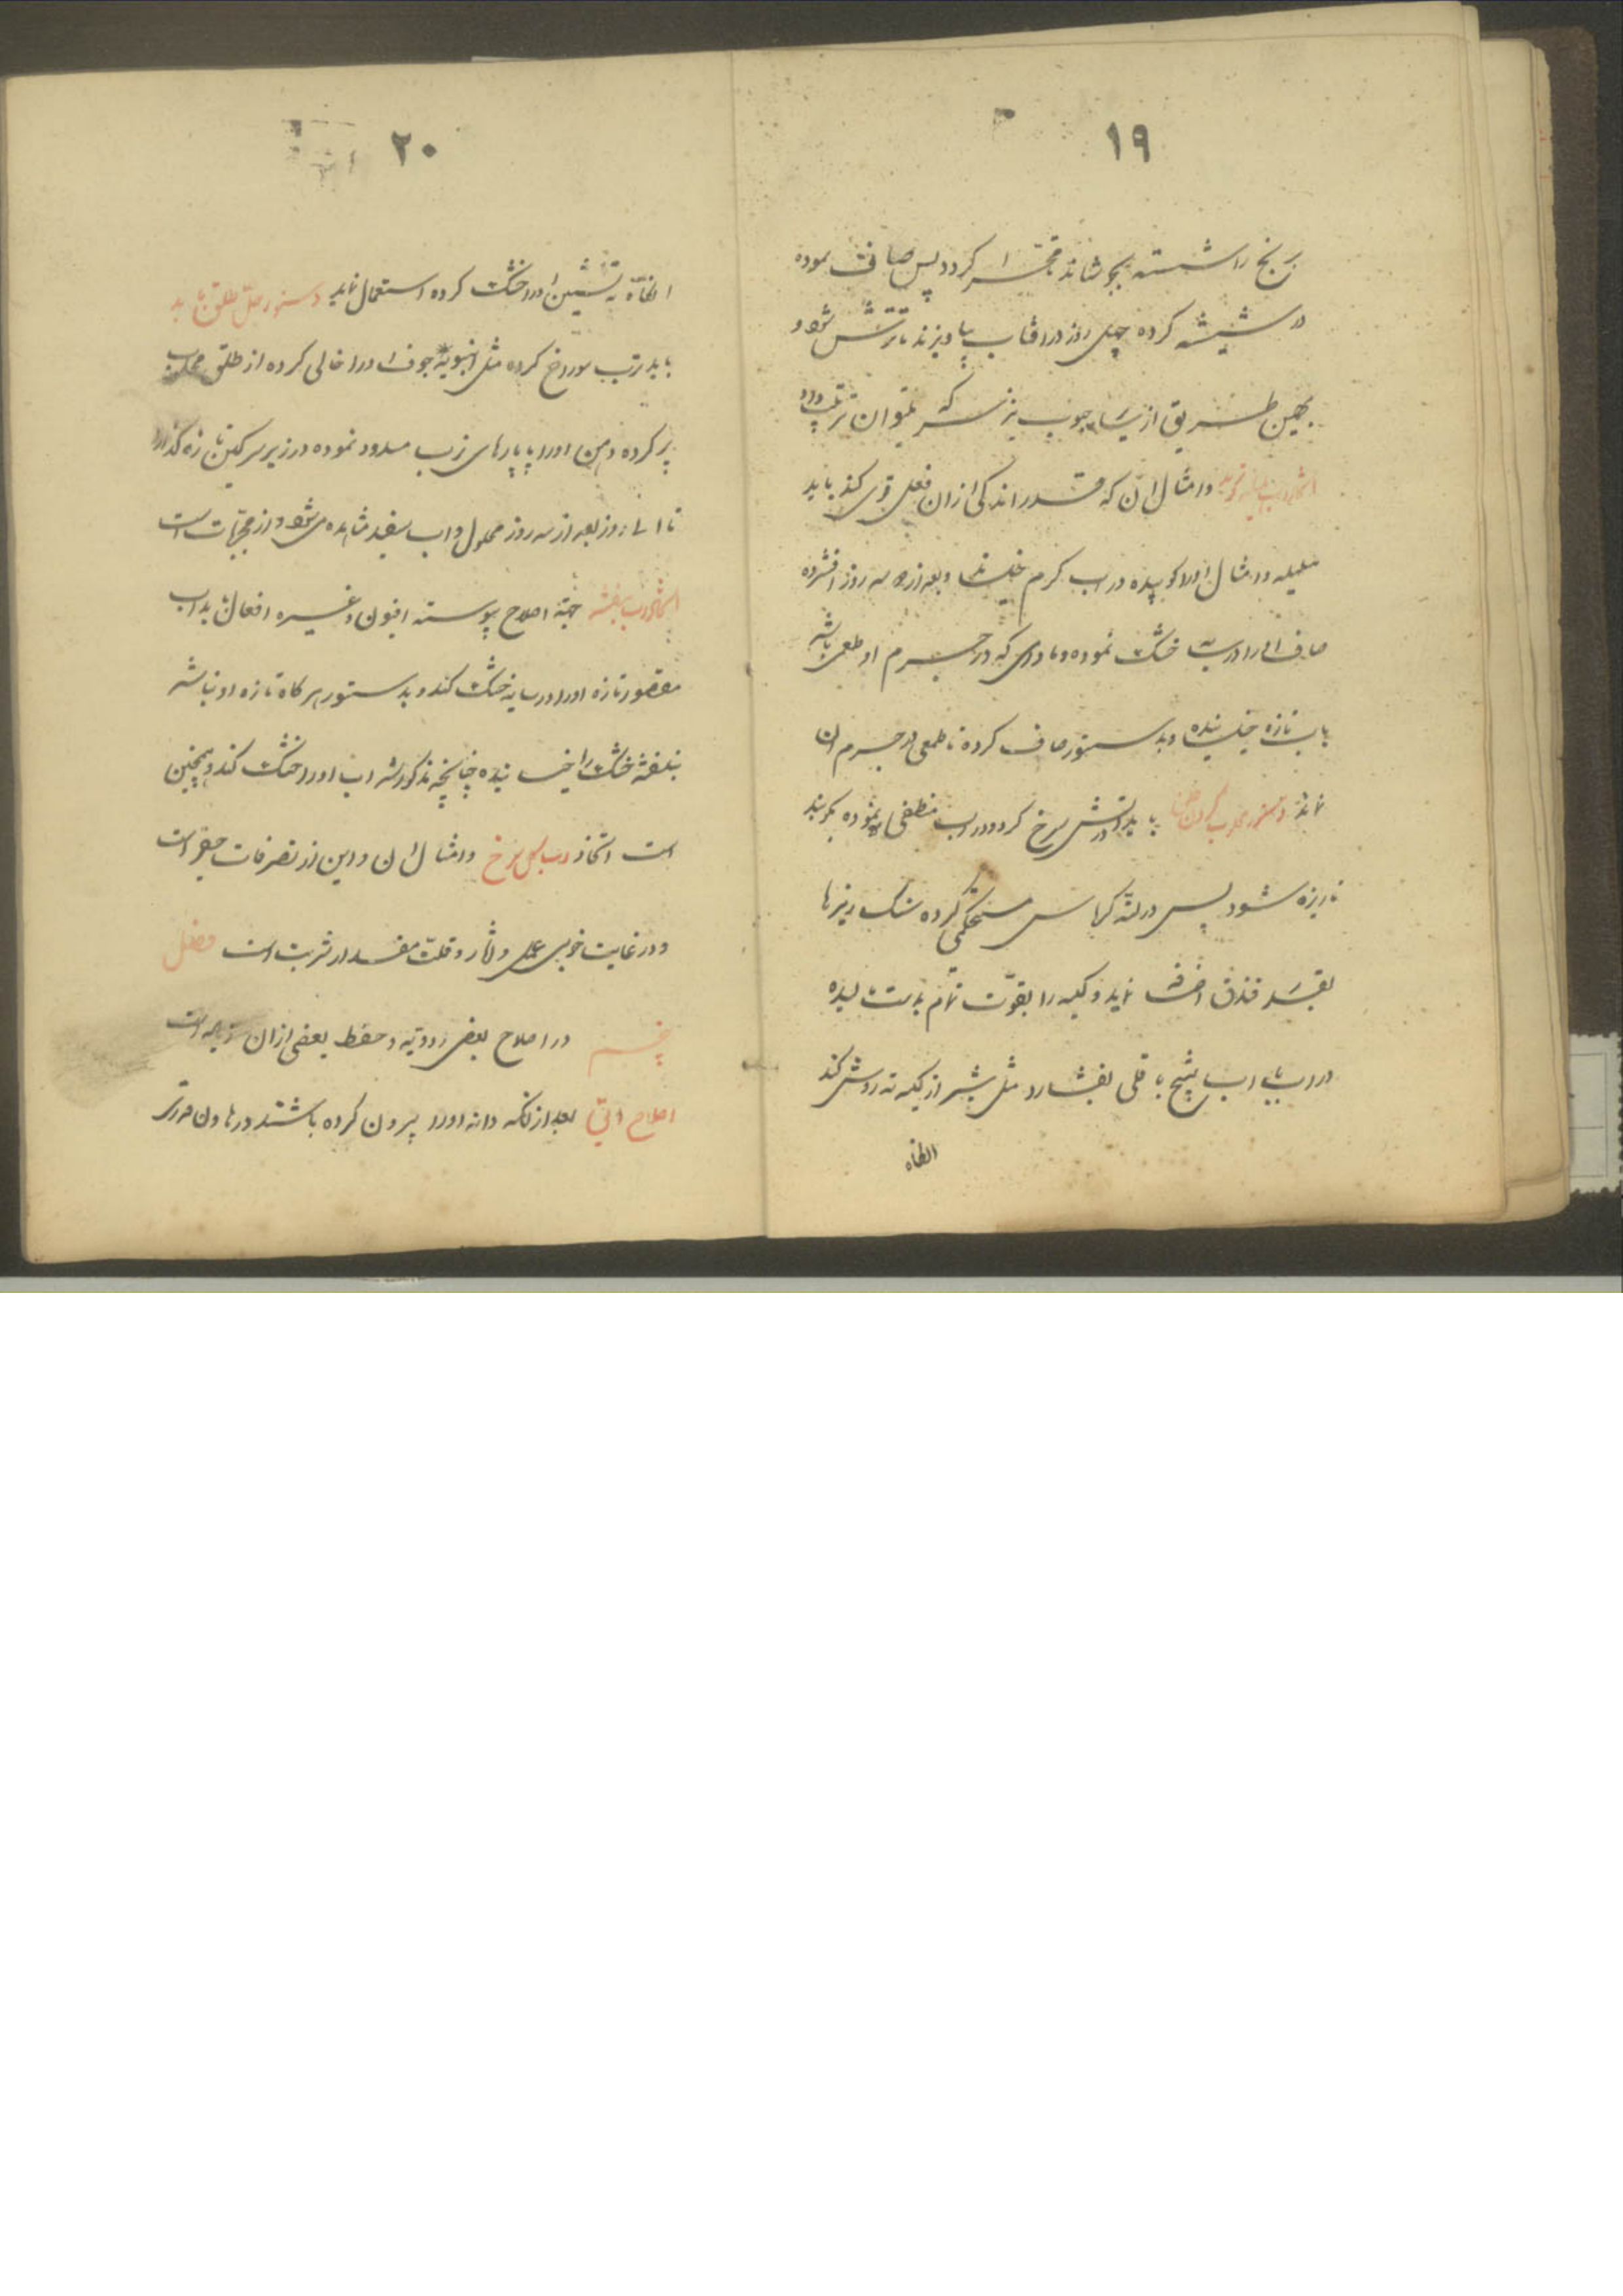 ۱۹
برنج را شسته بجوشاند تا مهرا کردد پس صاف نموده
در شیشه کرده چهل روز در افتاب بیاویزند تا ترش شود و
بهمین طریق از سایر حبوب نیز سرکه میتوان ترتیب داد
وامثال ان که قدر اندکی ازان فعل قوی کند باید
هلیله وامثال انرا کوبیده در اب کرم خیسانند و بعد از سه روز افشرده
صاف انرا در سایه خشک نموده و مادامی که در جرم او طعمی باشد
باب تازه خیسانیده وبدستور صاف کرده تا طعمی در جرم ان
نماند دستور محلوب کردن طلق باید در اتش سرخ کرده در اب منطفی نموده بکوبند
تا ریزه شود پس در لته کرباس مستحکمی کرده سنک ریزها
بقدر فندق اضافه نماید و کیسه را بقوت تمام بدست مالیده
در اب یا اب برنج باقلی بفشارد مثل شیر از کیسه تراوش کند
انکاه
۲۰
انکاه ته نشین اورا خشک کرده استعمال نماید دستور حل طلق باید
باید ترب سوراخ کرده مثل انبوبه جوف اورا خالی کرده از طلق محلوب
پر کرده دهن اورا بپارهای ترب مسدود نموده در زیر سرکین تازه کذارد
تا روز بعد از سه روز محلول واب سفید مشاهده می شود و از مجربات است
اتخاذ رب بنفشه جهة اصلاح پیوسته افیون وغیره افعال بد اب
مقصور تازه اورا در سایه خشک کند وبدستور هر کاه تازه او نباشد
بنفشه خشک را خیسانیده چنانچه مذکور شد اب اورا خشک کند وهمچنین
است اتخاذ رب کل سرخ وامثال ان واین از تصرفات حقیر است
ودر غایت خوبی عمل واثار وقلت مقدار شربت است فصل
پنجم در اصلاح بعض ادویه و حفظ بعضی ازان ادویه است
اصلاح بعد از انکه دانه اورا بیرون کرده باشند در هاون